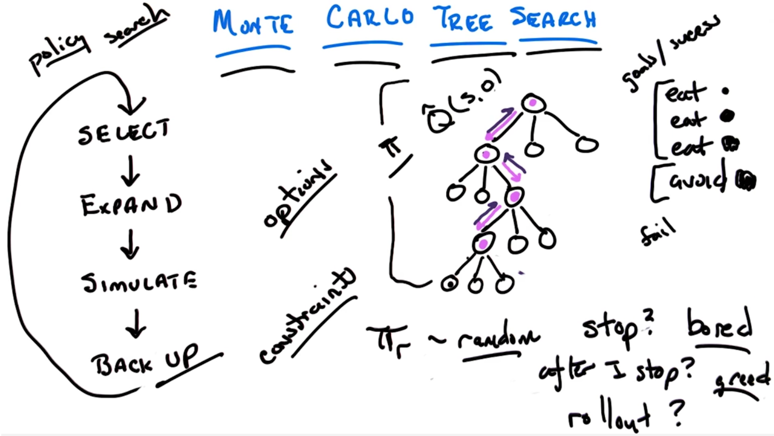 MONTE CARLO TREE SEARCH
policy search
SELECT
EXPAND
SIMULATE
BACK UP
options
constraints
π
Q̂(s,a)
goals/sucess
eat
eat
eat
avoid
fail
πr ~ random
stop? bored
after I stop? greed
rollout ?